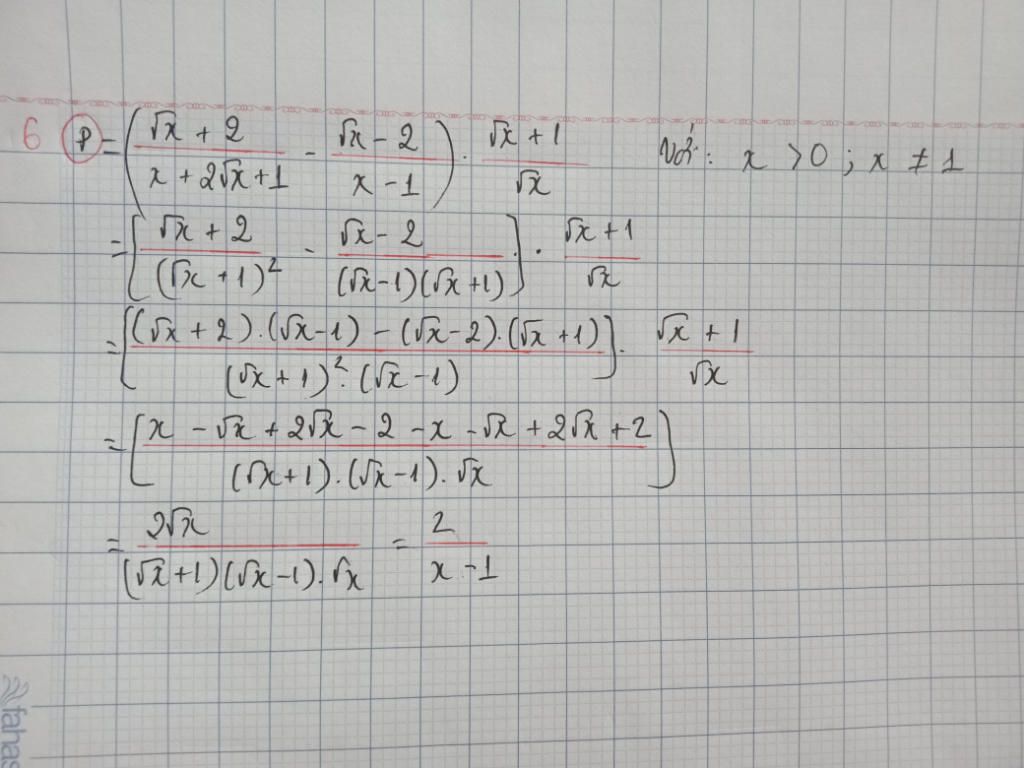 6 P = ( (√x + 2)/(x + 2√x + 1) - (√x - 2)/(x - 1) ) . (√x + 1)/√x Với : x > 0 ; x ≠ 1
= [ (√x + 2)/(√x + 1)² - (√x - 2)/((√x - 1)(√x + 1)) ] . (√x + 1)/√x
= [ ((√x + 2).(√x - 1) - (√x - 2).(√x + 1))/((√x + 1)².(√x - 1)) ] . (√x + 1)/√x
= [ (x - √x + 2√x - 2 - x - √x + 2√x + 2)/((√x + 1).(√x - 1).√x) ]
= 2√x/((√x + 1)(√x - 1).√x) = 2/(x - 1)
fahas